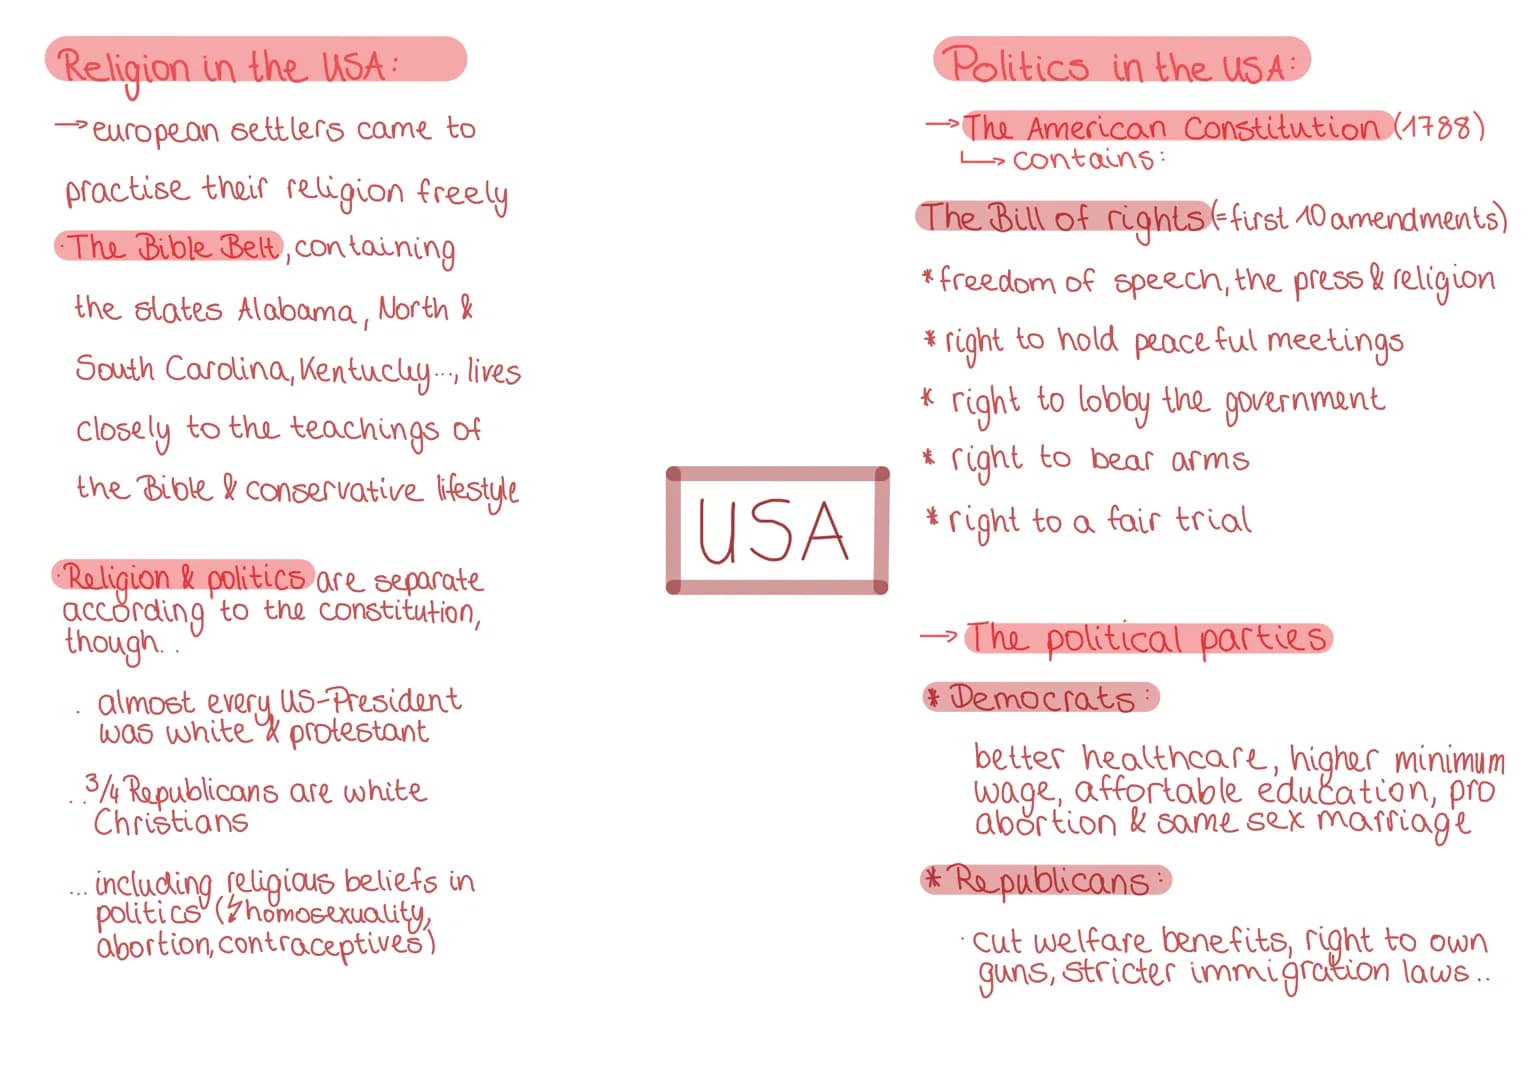 Religion in the USA:
→ european settlers came to
practise their religion freely
· The Bible Belt, containing
the states Alabama, North &
South Carolina, Kentucky..., lives
closely to the teachings of
the Bible & conservative lifestyle
· Religion & politics are separate
according to the constitution,
though..
. almost every US-President
was white & protestant
.. 3/4 Republicans are white
Christians
... including religious beliefs in
politics (↯homosexuality,
abortion, contraceptives)
USA
Politics in the USA:
→ The American Constitution (1788)
↳ contains:
The Bill of rights (=first 10 amendments)
* freedom of speech, the press & religion
* right to hold peaceful meetings
* right to lobby the government
* right to bear arms
* right to a fair trial
→ The political parties
* Democrats:
better healthcare, higher minimum
wage, affortable education, pro
abortion & same sex marriage
* Republicans:
· cut welfare benefits, right to own
guns, stricter immigration laws..